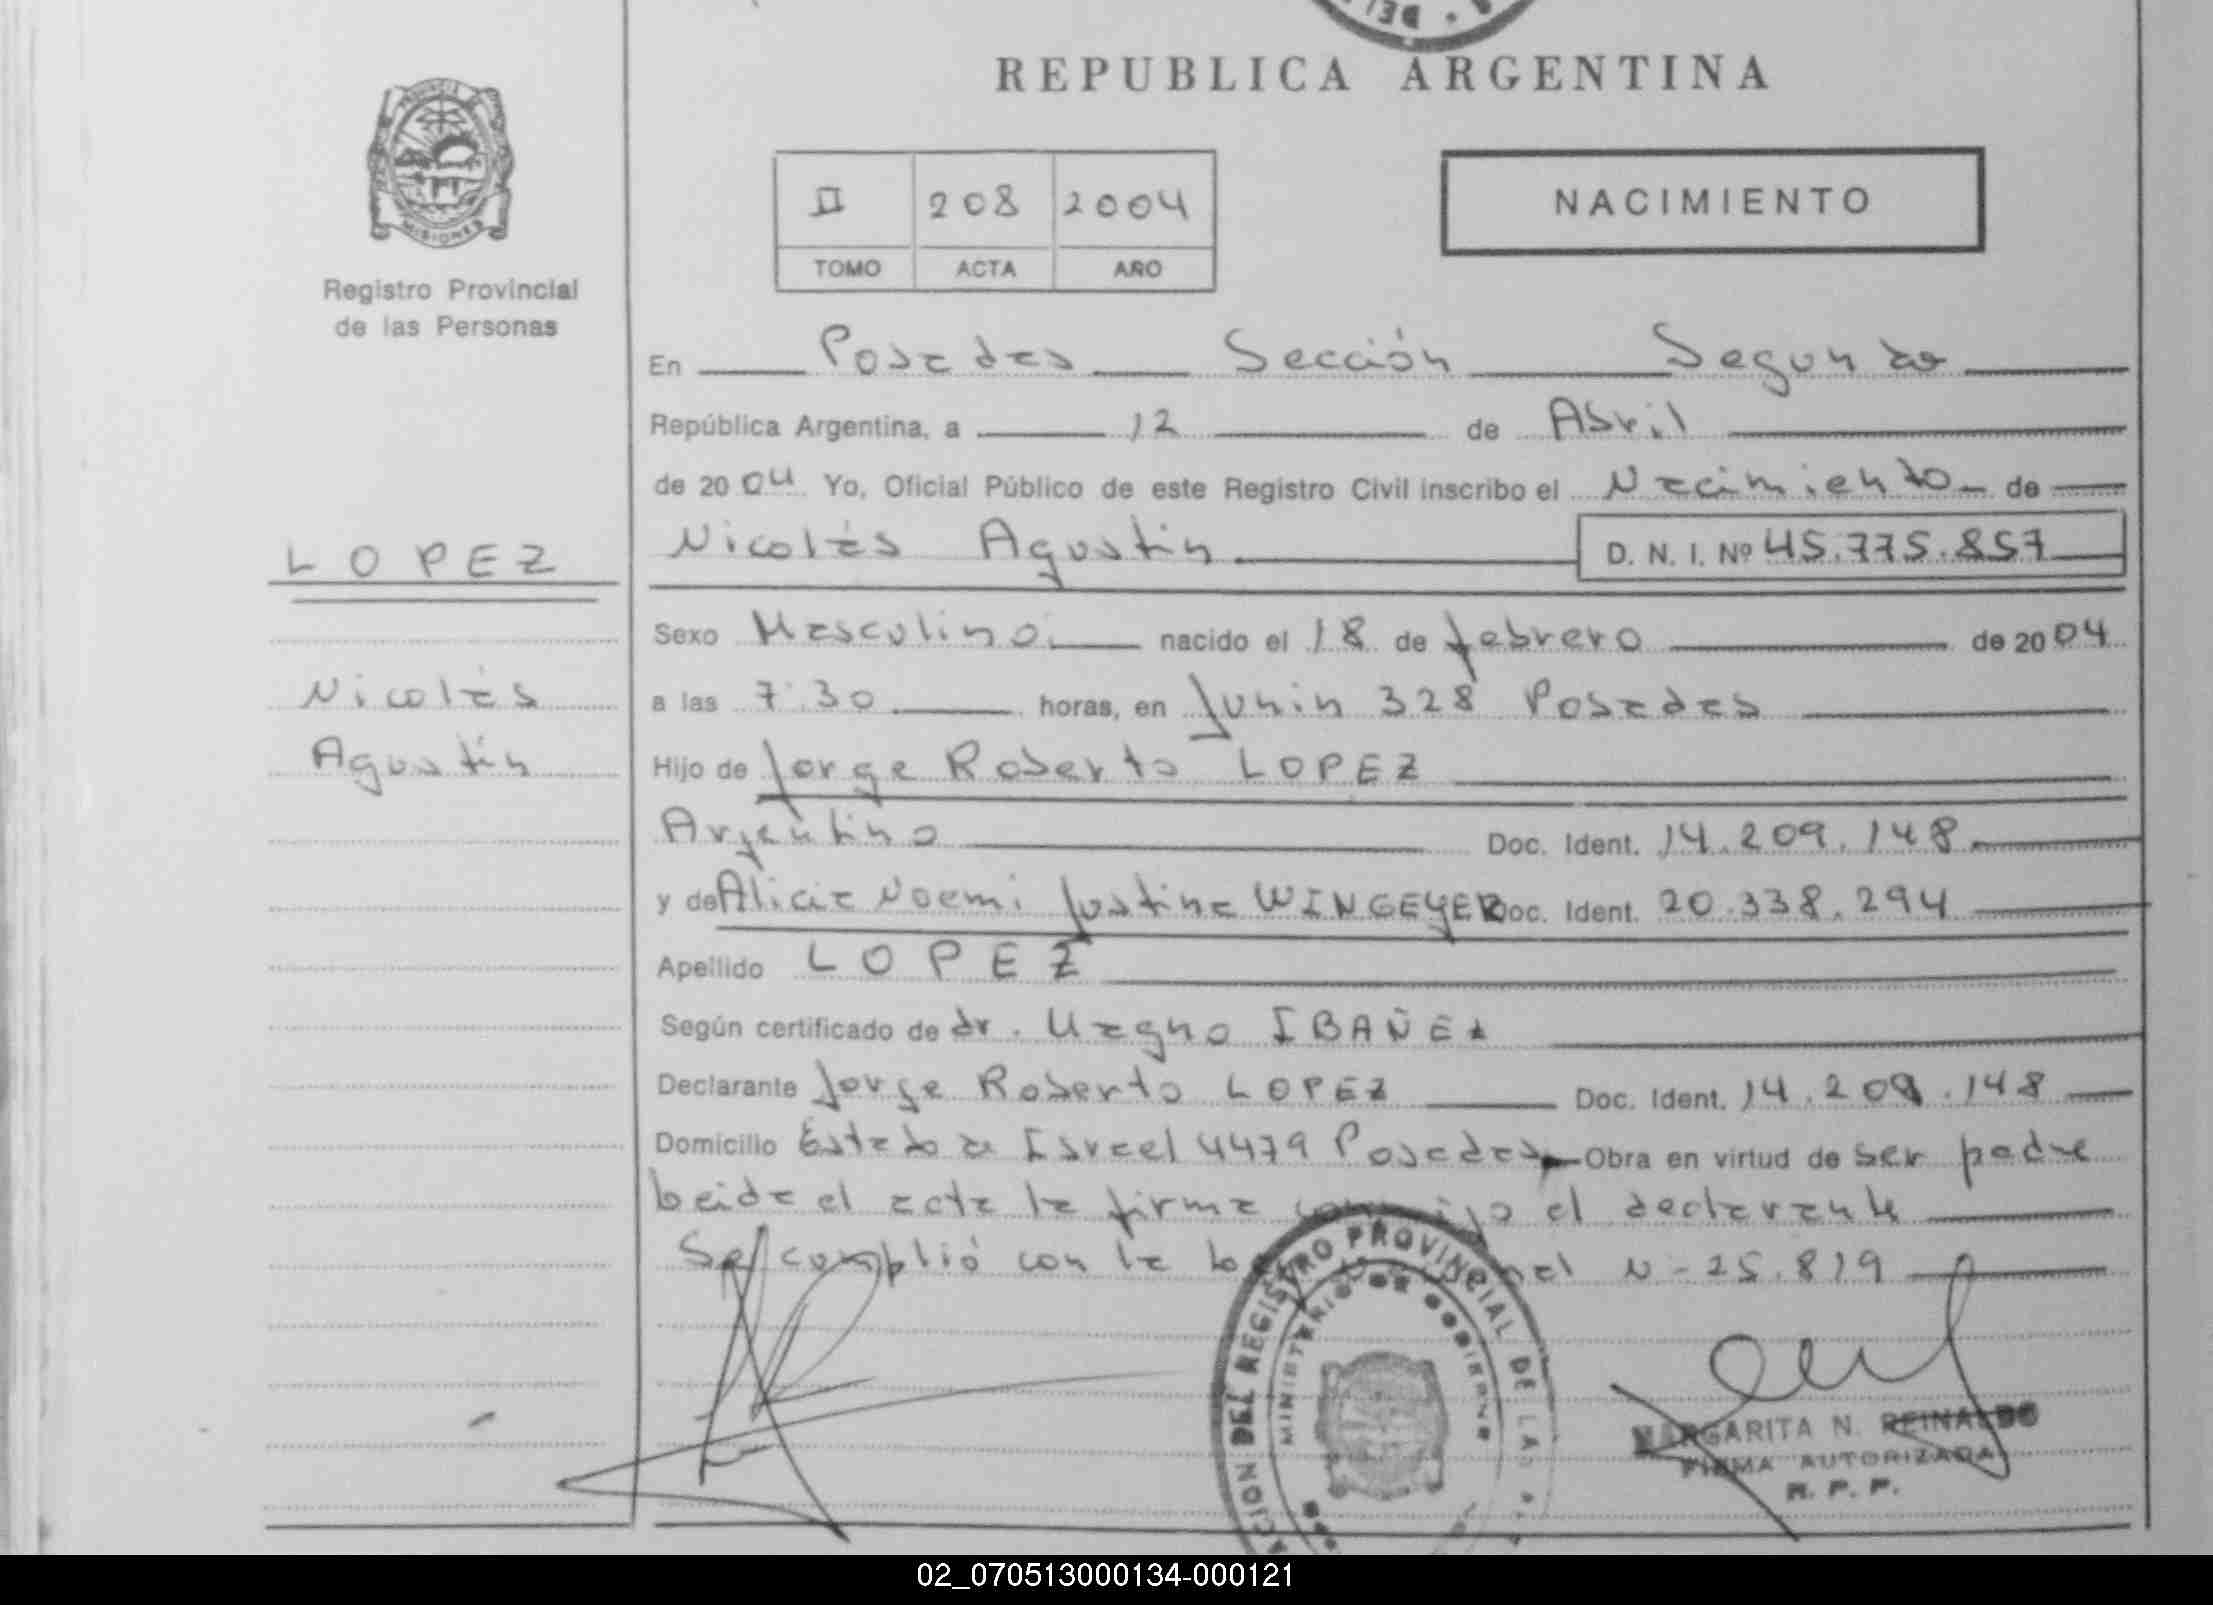 DEL
REPUBLICA ARGENTINA
PROVINCIA DE
MISIONES
Registro Provincial
de las Personas
II 208 2004
TOMO ACTA AÑO
NACIMIENTO
En Posadas Sección Segunda
República Argentina, a 12 de Abril
de 2004 Yo, Oficial Público de este Registro Civil inscribo el Nacimiento de
LOPEZ
Nicolás Agustín D. N. I. Nº 45.775.857
Sexo Masculino nacido el 18 de febrero de 2004
Nicolás
a las 7:30 horas, en Junin 328 Posadas
Agustín
Hijo de Jorge Roberto LOPEZ
Argentino Doc. Ident. 14.209.148
y de Alicia Noemi Justina WINGEYER Doc. Ident. 20.338.294
Apellido LOPEZ
Según certificado de dr. Magno IBAÑEZ
Declarante Jorge Roberto LOPEZ Doc. Ident. 14.209.148
Domicilio Estado de Israel 4479 Posadas Obra en virtud de ser padre
Leida el acta la firma conmigo el declarante
Se cumplió con la N-25.819
CION DEL REGISTRO PROVINCIAL DE LAS
MINISTERIO DE GOBIERNO
MARGARITA N. REINALDO
FIRMA AUTORIZADA
R. P. P.
02_070513000134-000121